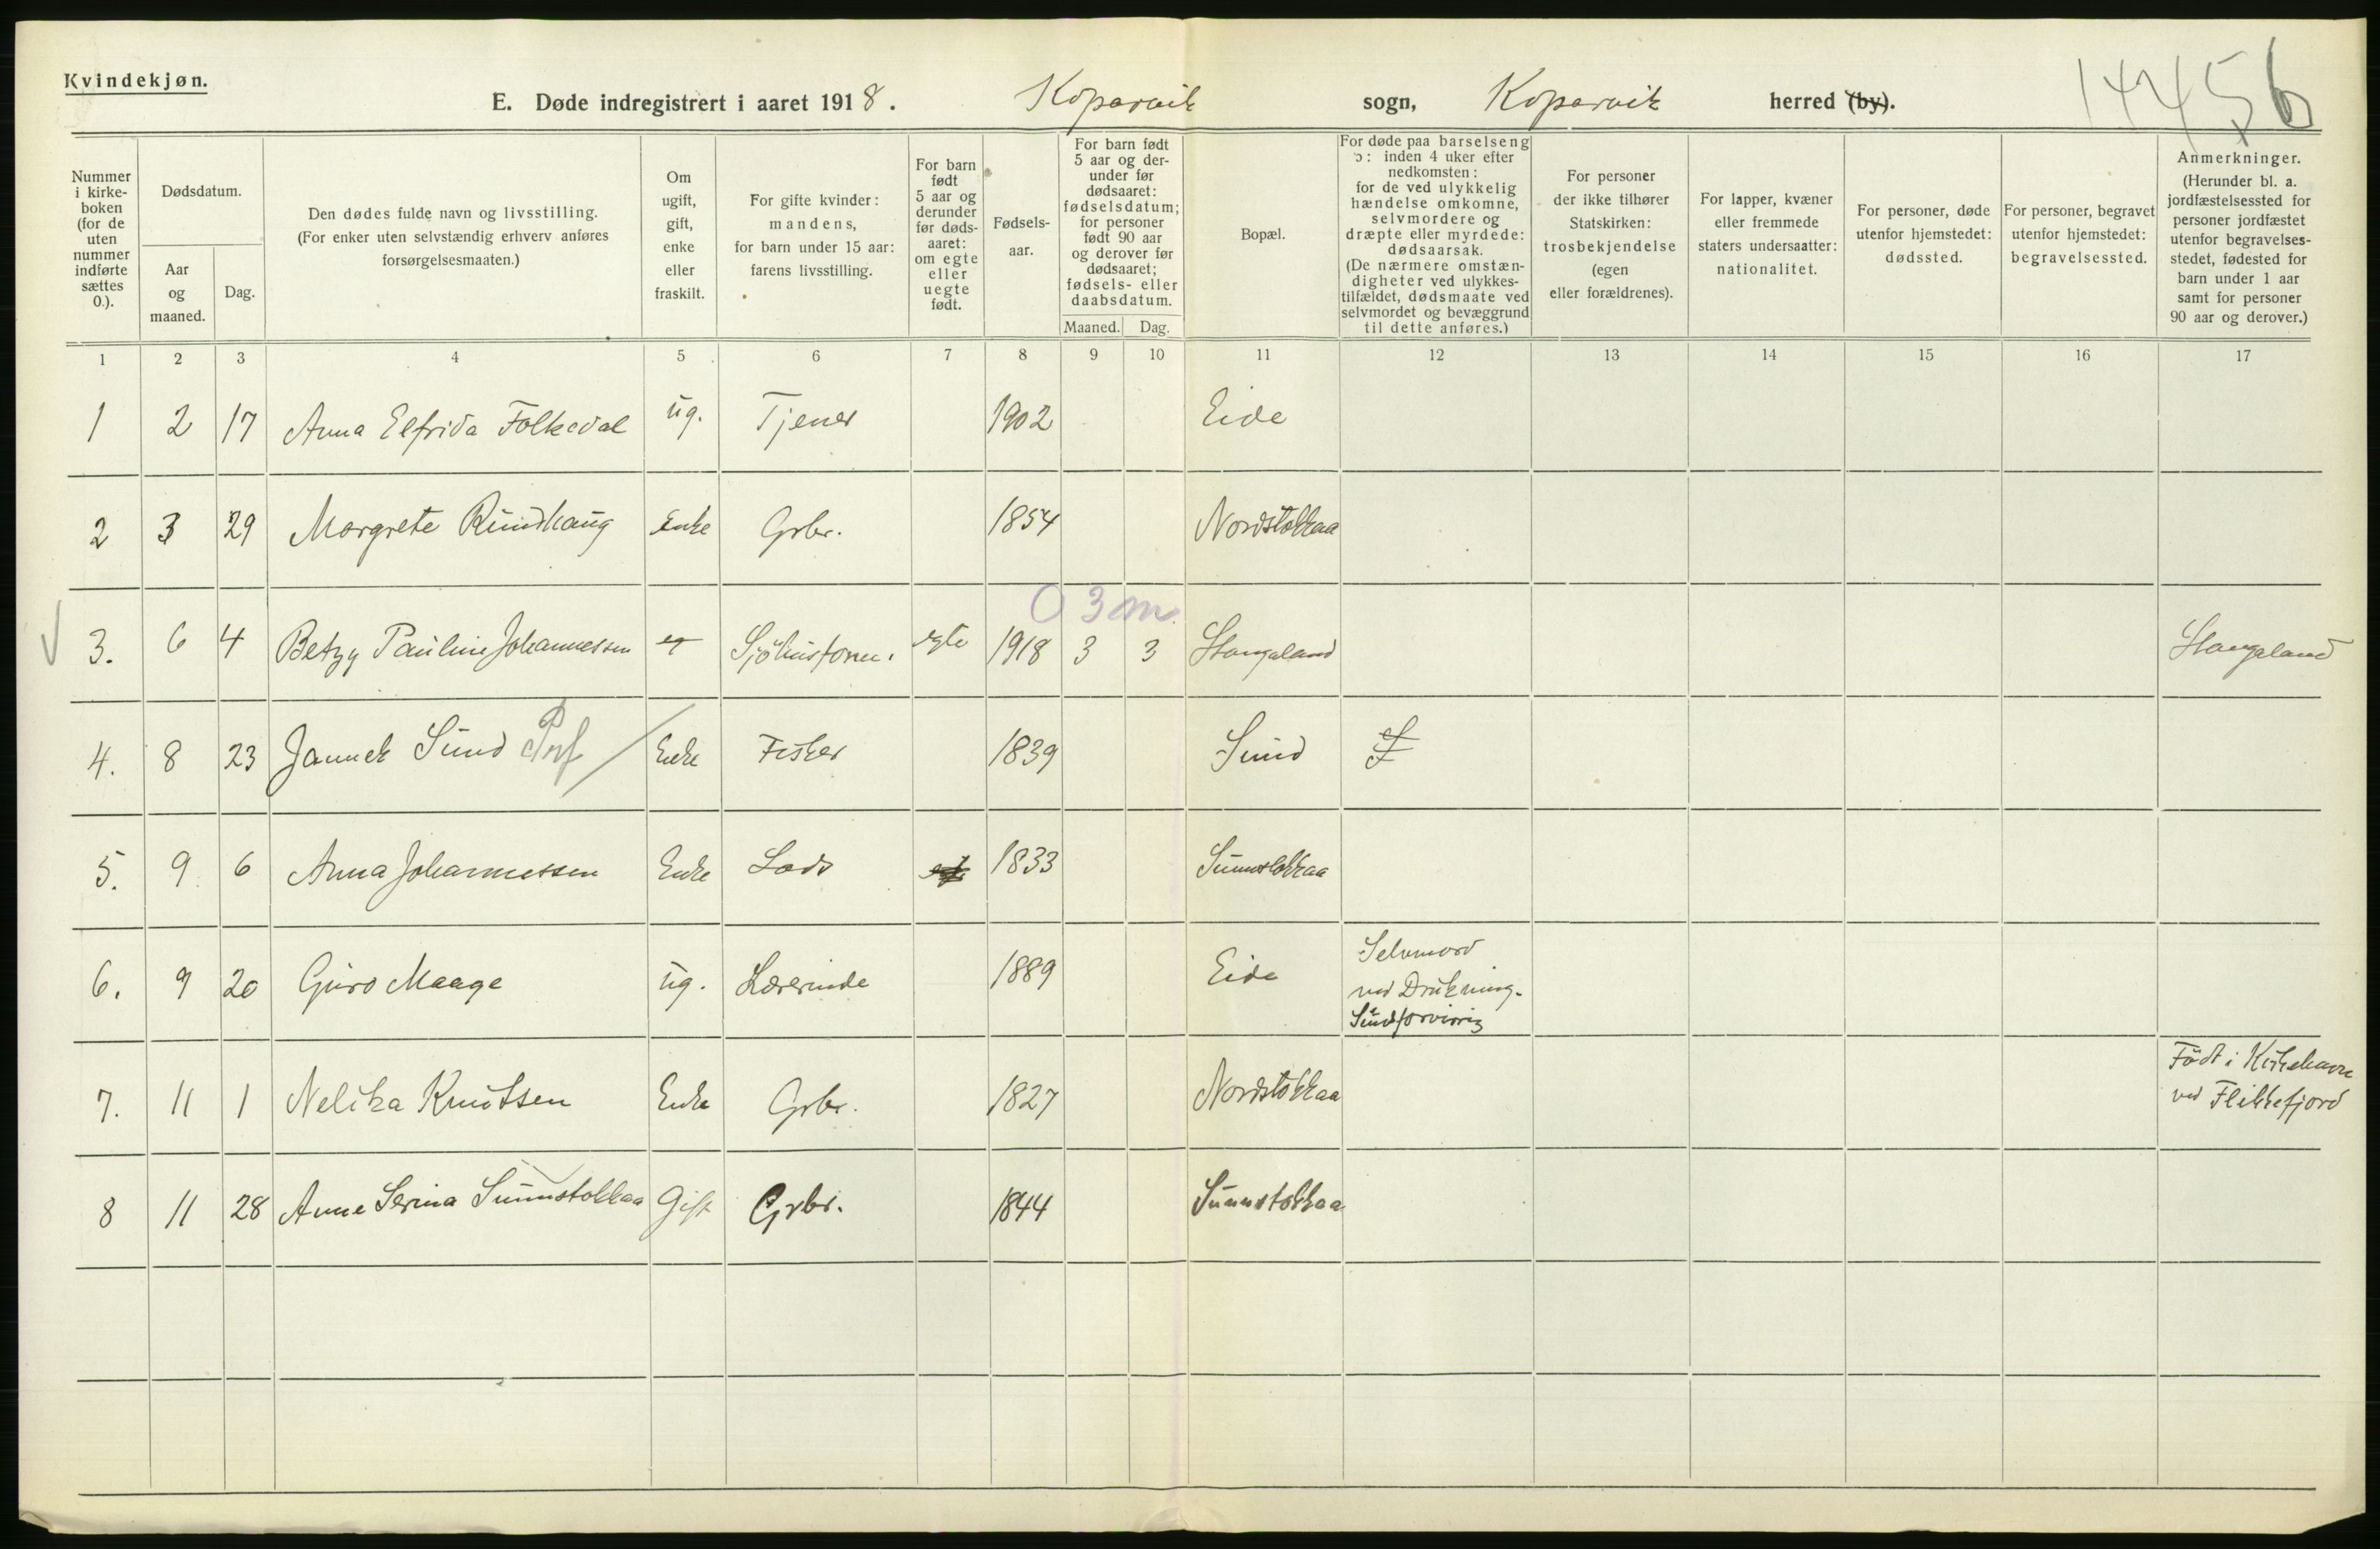 Kvindekjøn.
E. Døde indregistrert i aaret 1918. Kopervik sogn, Kopervik herred (by).
14456
Nummer i kirke- boken (for de uten nummer indførte sættes 0.).
Dødsdatum.
Aar og maaned.
Dag.
Den dødes fulde navn og livsstilling.
(For enker uten selvstændig erhverv anføres
forsørgelsesmaaten.)
Om ugift, gift, enke eller fraskilt.
For gifte kvinder: mandens, for barn under 15 aar: farens livsstilling.
For barn født 5 aar og derunder før døds- aaret: om egte eller uegte født.
Fødsels- aar.
For barn født 5 aar og der- under før dødsaaret: fødselsdatum; for personer født 90 aar og derover før dødsaaret; fødsels- eller daabsdatum.
Maaned. Dag.
Bopæl.
For døde paa barselseng ɔ: inden 4 uker efter nedkomsten: for de ved ulykkelig hændelse omkomne, selvmordere og dræpte eller myrdede: dødsaarsak. (De nærmere omstæn- digheter ved ulykkes- tilfældet, dødsmaate ved selvmordet og bevæggrund til dette anføres.)
For personer der ikke tilhører Statskirken: trosbekjendelse (egen eller forældrenes).
For lapper, kvæner eller fremmede staters undersaatter: nationalitet.
For personer, døde utenfor hjemstedet: dødssted.
For personer, begravet utenfor hjemstedet: begravelsessted.
Anmerkninger. (Herunder bl. a. jordfæstelsessted for personer jordfæstet utenfor begravelses- stedet, fødested for barn under 1 aar samt for personer 90 aar og derover.)
1 2 3 4 5 6 7 8 9 10 11 12 13 14 15 16 17
1 2 17 Anna Elfrida Folkedal ug. Tjener 1902 Eide
2 3 29 Margrete Rundhaug Enke Grbr. 1854 Nordstokkaa
0 3 m.
3. 6 4 Betzy Pauline Johannessen Sjöhusform. egte 1918 3 3 Stangaland Stangaland
4. 8 23 Sund Enke Fisker 1839 Sund
5. 9 6 Anna Johannessen Enke Lods 1833 Sunnstokkaa
6. 9 20 Guro Maage ug. Lærerinde 1889 Eide Selvmord
ved Drukning.
Sindsforvirring
7. 11 1 Nelika Knutsen Enke Grbr. 1827 Nordstokkaa Födt i Kirkehavn
ved Flekkefjord
8 11 28 Anne Serina Sunnstokkaa Gift Grbr. 1844 Sunnstokkaa